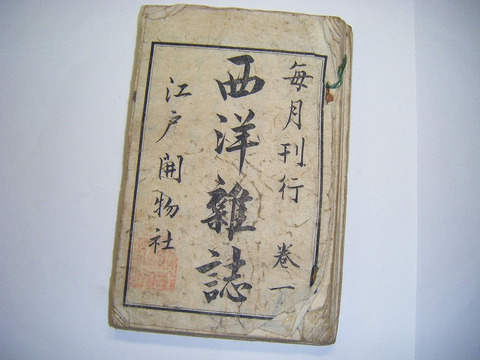 毎月刊行 巻一
西洋雜誌
江戸開物社